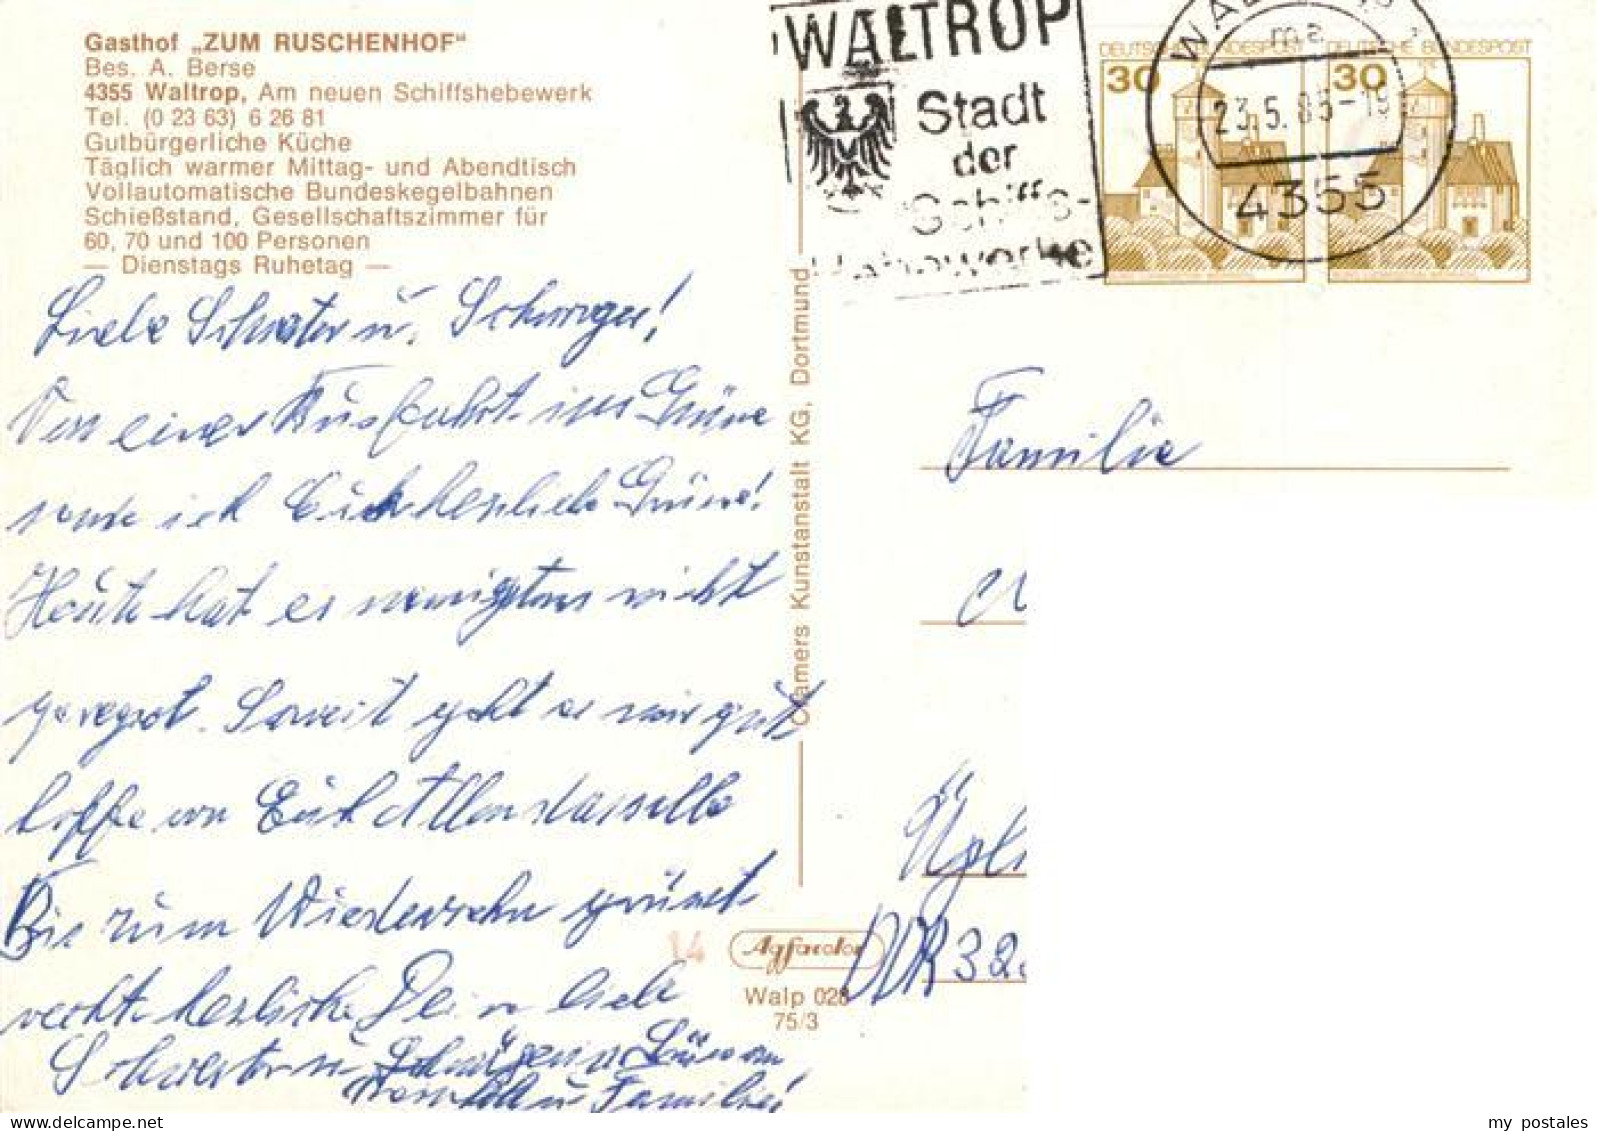 Gasthof „ZUM RUSCHENHOF"
Bes. A. Berse
4355 Waltrop, Am neuen Schiffshebewerk
Tel. (0 23 63) 6 26 81
Gutbürgerliche Küche
Täglich warmer Mittag- und Abendtisch
Vollautomatische Bundeskegelbahnen
Schießstand, Gesellschaftszimmer für
60, 70 und 100 Personen
— Dienstags Ruhetag —
Liebe Schwester u. Schwager!
Von einer Ausfahrt ins Grüne
ich Euch herzliche Grüsse!
Heute hat es wenigstens nicht
geregnet. Soweit geht es mir gut
hoffe von Euch Allen dasselbe
Bis zum Wiedersehn grüsst
recht herzliche Deine liebe
Schwester u. Schwägerin Grüsse an
u Familie!
Cramers Kunstanstalt KG, Dortmund
14
Agfacolor
Walp 028
75/3
WALTROP
Stadt
der
Schiffs-
Hebewerke
DEUTSCHE BUNDESPOST
30
DEUTSCHE BUNDESPOST
30
WALTROP 1
ma
23.5.85-19
4355
Familie
DDR 32
my postales